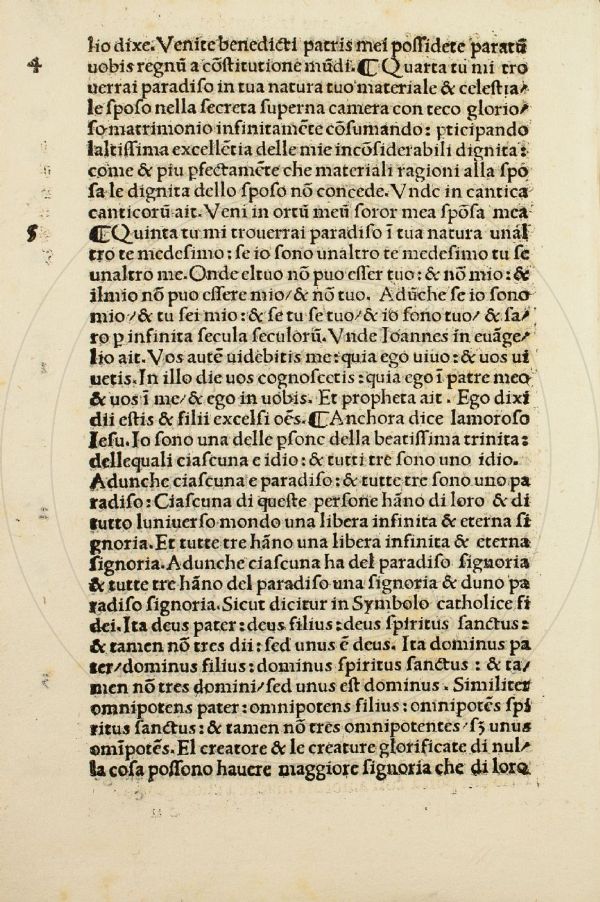 lio dixe. Venite benedicti patris mei possidete paratū
4 uobis regnū a cōstitutione mūdi. ¶ Quarta tu mi tro
uerrai paradiso in tua natura tuo materiale & celestia/
le sposo nella secreta superna camera con teco glorio/
so matrimonio infinitamēte cōsumando: pticipando
laltissima excellētia delle mie incōsiderabili dignita:
come & piu pfectamēte che materiali ragioni alla spo
sa le dignita dello sposo nō concede. Vnde in cantica
canticorū ait. Veni in ortū meū soror mea spōsa mea
5 ¶ Quinta tu mi trouerrai paradiso ī tua natura unal
tro te medesimo: se io sono unaltro te medesimo tu se
unaltro me. Onde el tuo nō puo esser tuo: & nō mio: &
il mio nō puo essere mio/ & nō tuo. Adūche se io sono
mio/ & tu sei mio: & se tu se tuo/ & io sono tuo/ & sa/
ro p infinita secula seculorū. Vnde Ioannes in euāge/
lio ait. Vos autē uidebitis me: quia ego uiuo: & uos ui
uetis. In illo die uos cognoscetis: quia ego ī patre meo
& uos ī me/ & ego in uobis. Et propheta ait. Ego dixi
dii estis & filii excelsi oēs. ¶ Anchora dice lamoroso
Iesu. Io sono una delle psone della beatissima trinita:
dellequali ciascuna e idio: & tutti tre sono uno idio.
Adunche ciascuna e paradiso: & tutte tre sono uno pa
radiso: Ciascuna di queste persone hāno di loro & di
tutto luniuerso mondo una libera infinita & eterna si
gnoria. Et tutte tre hāno una libera infinita & eterna
signoria. Adunche ciascuna ha del paradiso signoria
& tutte tre hāno del paradiso una signoria & duno pa
radiso signoria. Sicut dicitur in Symbolo catholice fi
dei. Ita deus pater: deus filius: deus spiritus sanctus:
& tamen nō tres dii: sed unus ē deus. Ita dominus pa
ter/ dominus filius: dominus spiritus sanctus: & ta/
men nō tres domini/ sed unus est dominus. Similiter
omnipotens pater: omnipotens filius: oninipotēs spi
ritus sanctus: & tamen nō tres omnipotentes/ sꝫ unus
omīpotēs. El creatore & le creature glorificate di nul/
la cosa possono hauere maggiore signoria che di loro